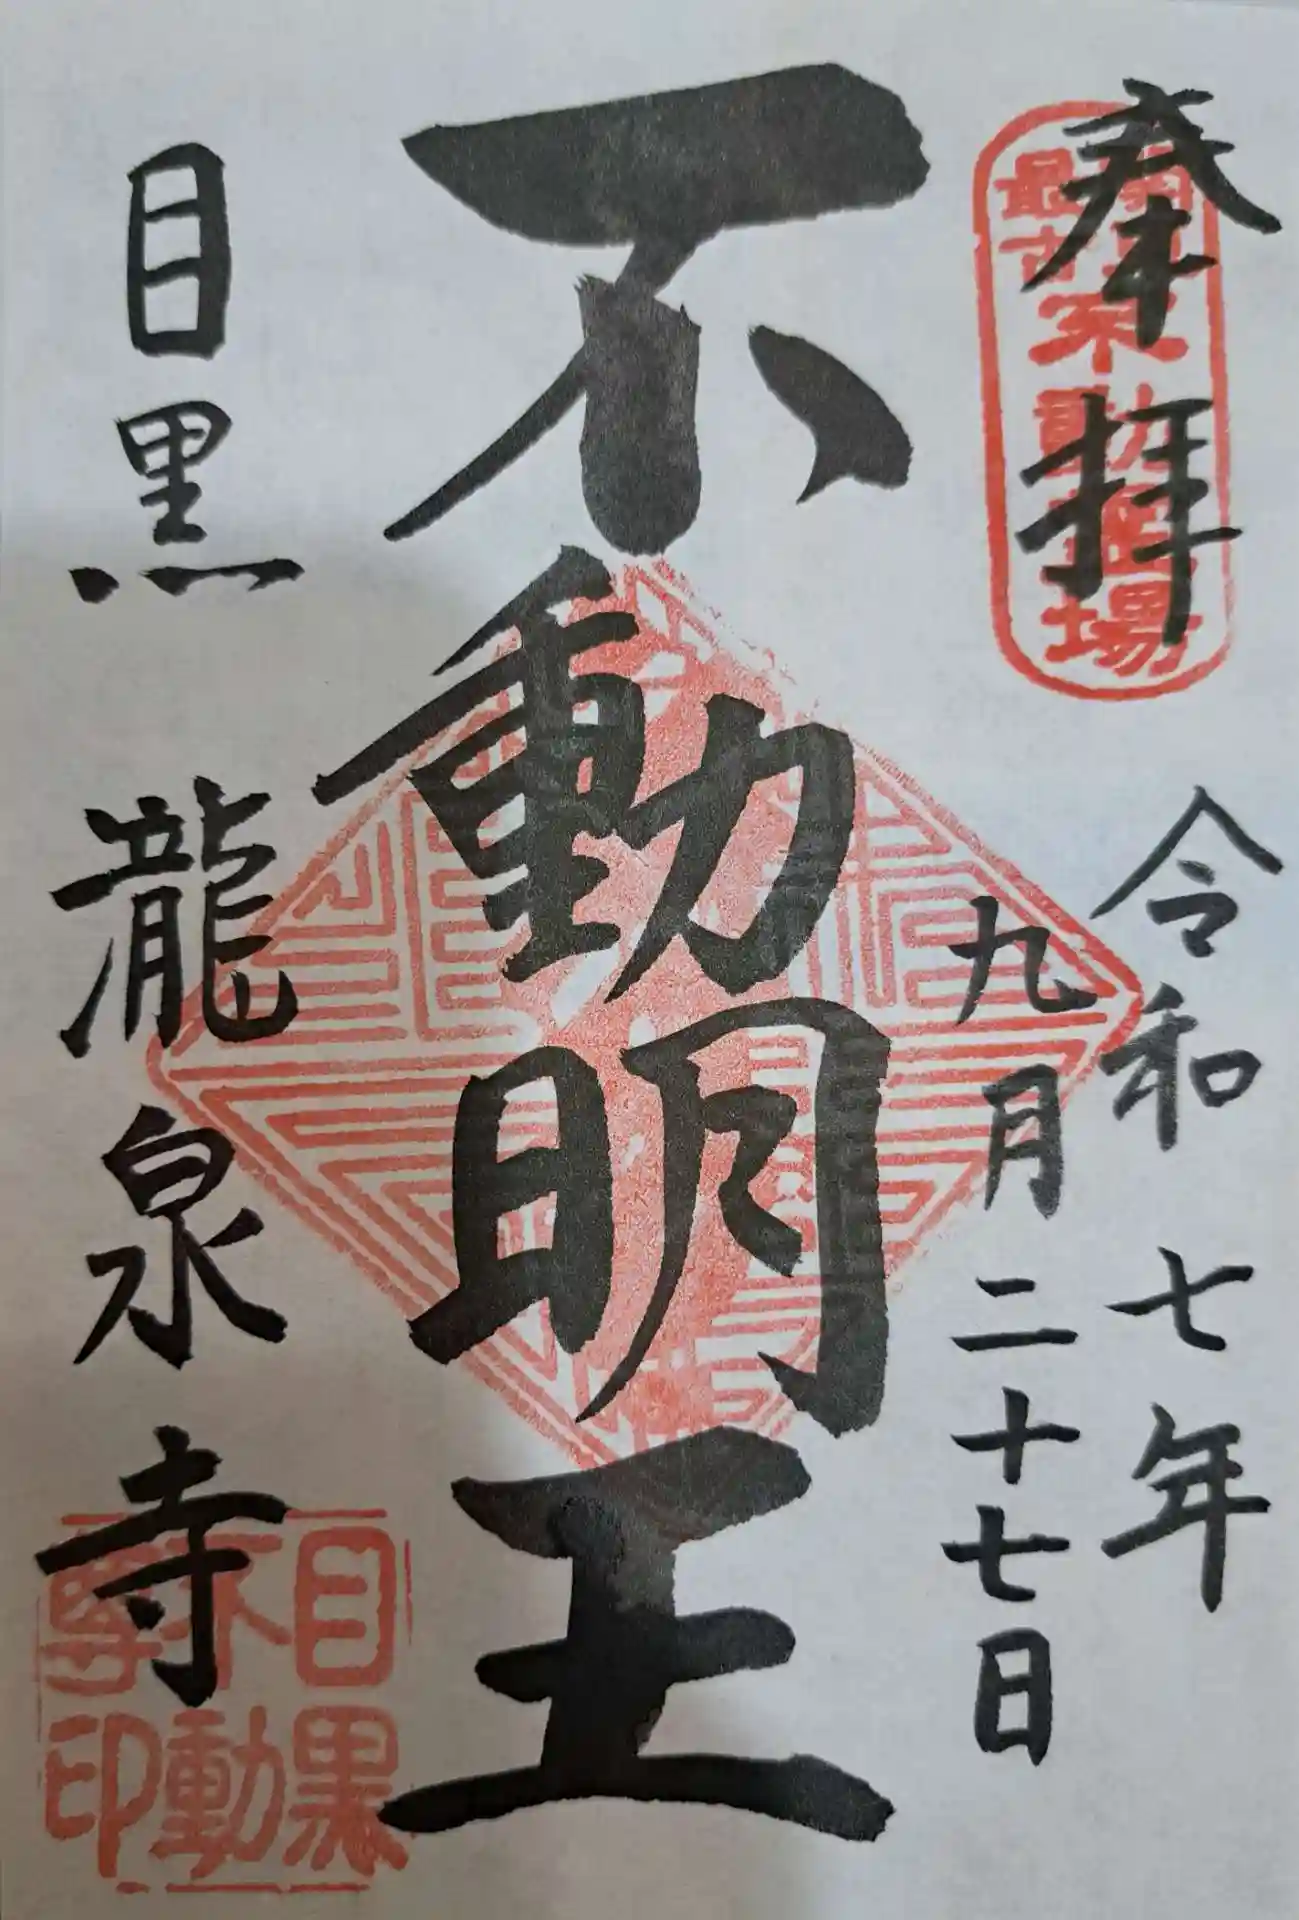 奉拝
令和七年
九月二十七日
関東最古不動霊場
不動明王
目黒 瀧泉寺
目黒
不動
尊印